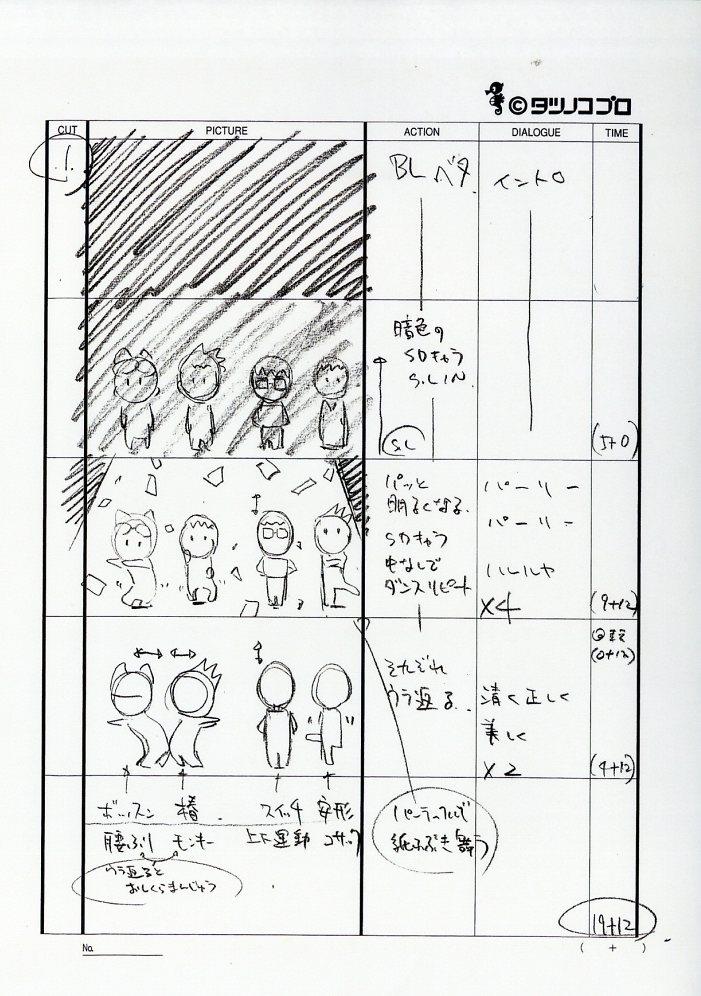 ©タツノコプロ
CUT PICTURE ACTION DIALOGUE TIME
1.
BLベタ
イントロ
暗色の
SDきゃら
S.L IN
SL
(5+0)
パッと
明るくなる.
SDきゃら
中なしで
ダンスリピート
パーリー
パーリー
ハレルヤ
×4
(9+12)
(0+12)
それぞれ
ウラ返る.
清く正しく
美しく
×2
(4+12)
ボッスン 椿 スイッチ 安形
腰ふり モンキー 上下運動 コサック
ウラ返ると
おしくらまんじゅう
紙ふぶき舞う
19+12
No.
( + )